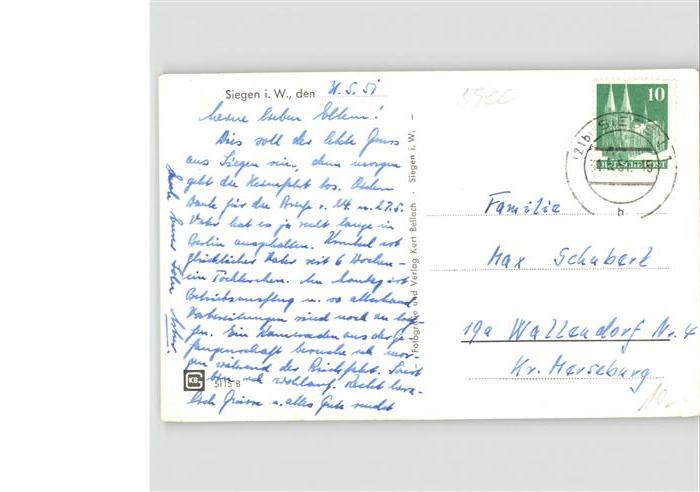 Siegen i. W., den 31.5.51
Meine lieben Eltern!
Dies soll der letzte Gruss
aus Siegen sein, denn morgen
geht die Heimfahrt los. Vielen
Dank für die Briefe v. 24. u. 27.5.
Vater hat es ja recht lange in
Berlin ausgehalten. ist
glücklicher Vater seit 6 Wochen -
ein Töchterchen. Am Montag ist
Betriebsausflug u. so allerhand
Vorbereitungen sind noch zu tref-
fen. Ein Kameraden aus der Ge-
fangenschaft besuche ich mor-
gen während der Rückfahrt. Sonst
bin ich wohlauf. Recht herz-
lich Grüsse u. alles Gute sendet
Euch Euer Sohn
KB 5115 B
Fotografie und Verlag Kurt Bellach - Siegen i. W. -
10
DEUTSCHE POST
(21b) SIEGEN
b
Familie
Max Schubert
19a Wallendorf Nr. 4
Kr. Merseburg